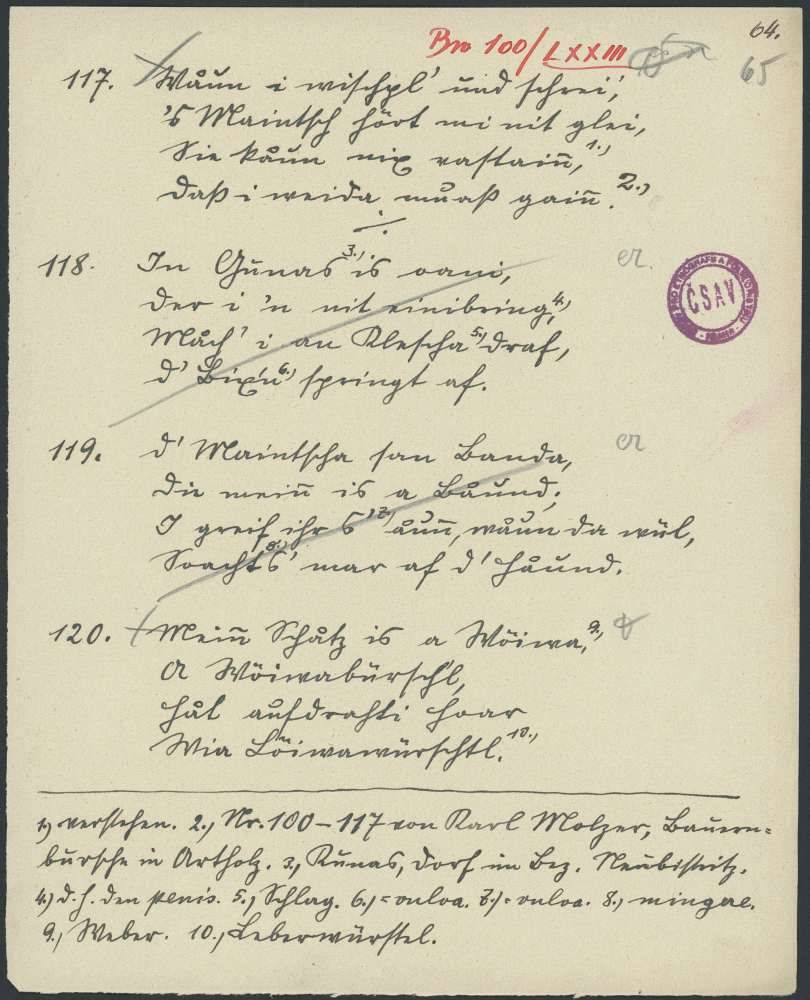 Brn 100/LXXIII
64.
65
117. Wåun i wischpl' und schrei',
's Maintsch höat mi nit glei,
Sie kåun nix vastain̄, 1.)
Daß i weida muaß gain̄. 2.)
118. In Gunas 3.) is oani,
er
Der i 'n nit einibring, 4.)
Måch' i an Klescha 5.) draf,
d' Bix'n 6.) springt af.
119. d' Maintscha san Banda,
er
Die mein̄ is a Båund;
I greif ihr S' 7.) åun̄, wåun da wül,
Soacht S' 8.) mar af d' Håund.
120. Mein Schåtz is a Wöiwa, 9.)
A Wöiwabürsch'l,
Håt aufdrahti Hoar
Wia Löiwawürschtl. 10.)
1.) verstehen. 2.) Nr. 100-117 von Karl Molzer, Bauern=
bursche in Artholz. 3.) Kunas, Dorf im Bez. Neubistritz.
4.) d.h. den penis. 5.) Schlag. 6.) = vulva. 7.) = vulva. 8.) mingere.
9.) Weber. 10.) Leberwürstel.
ČSAV